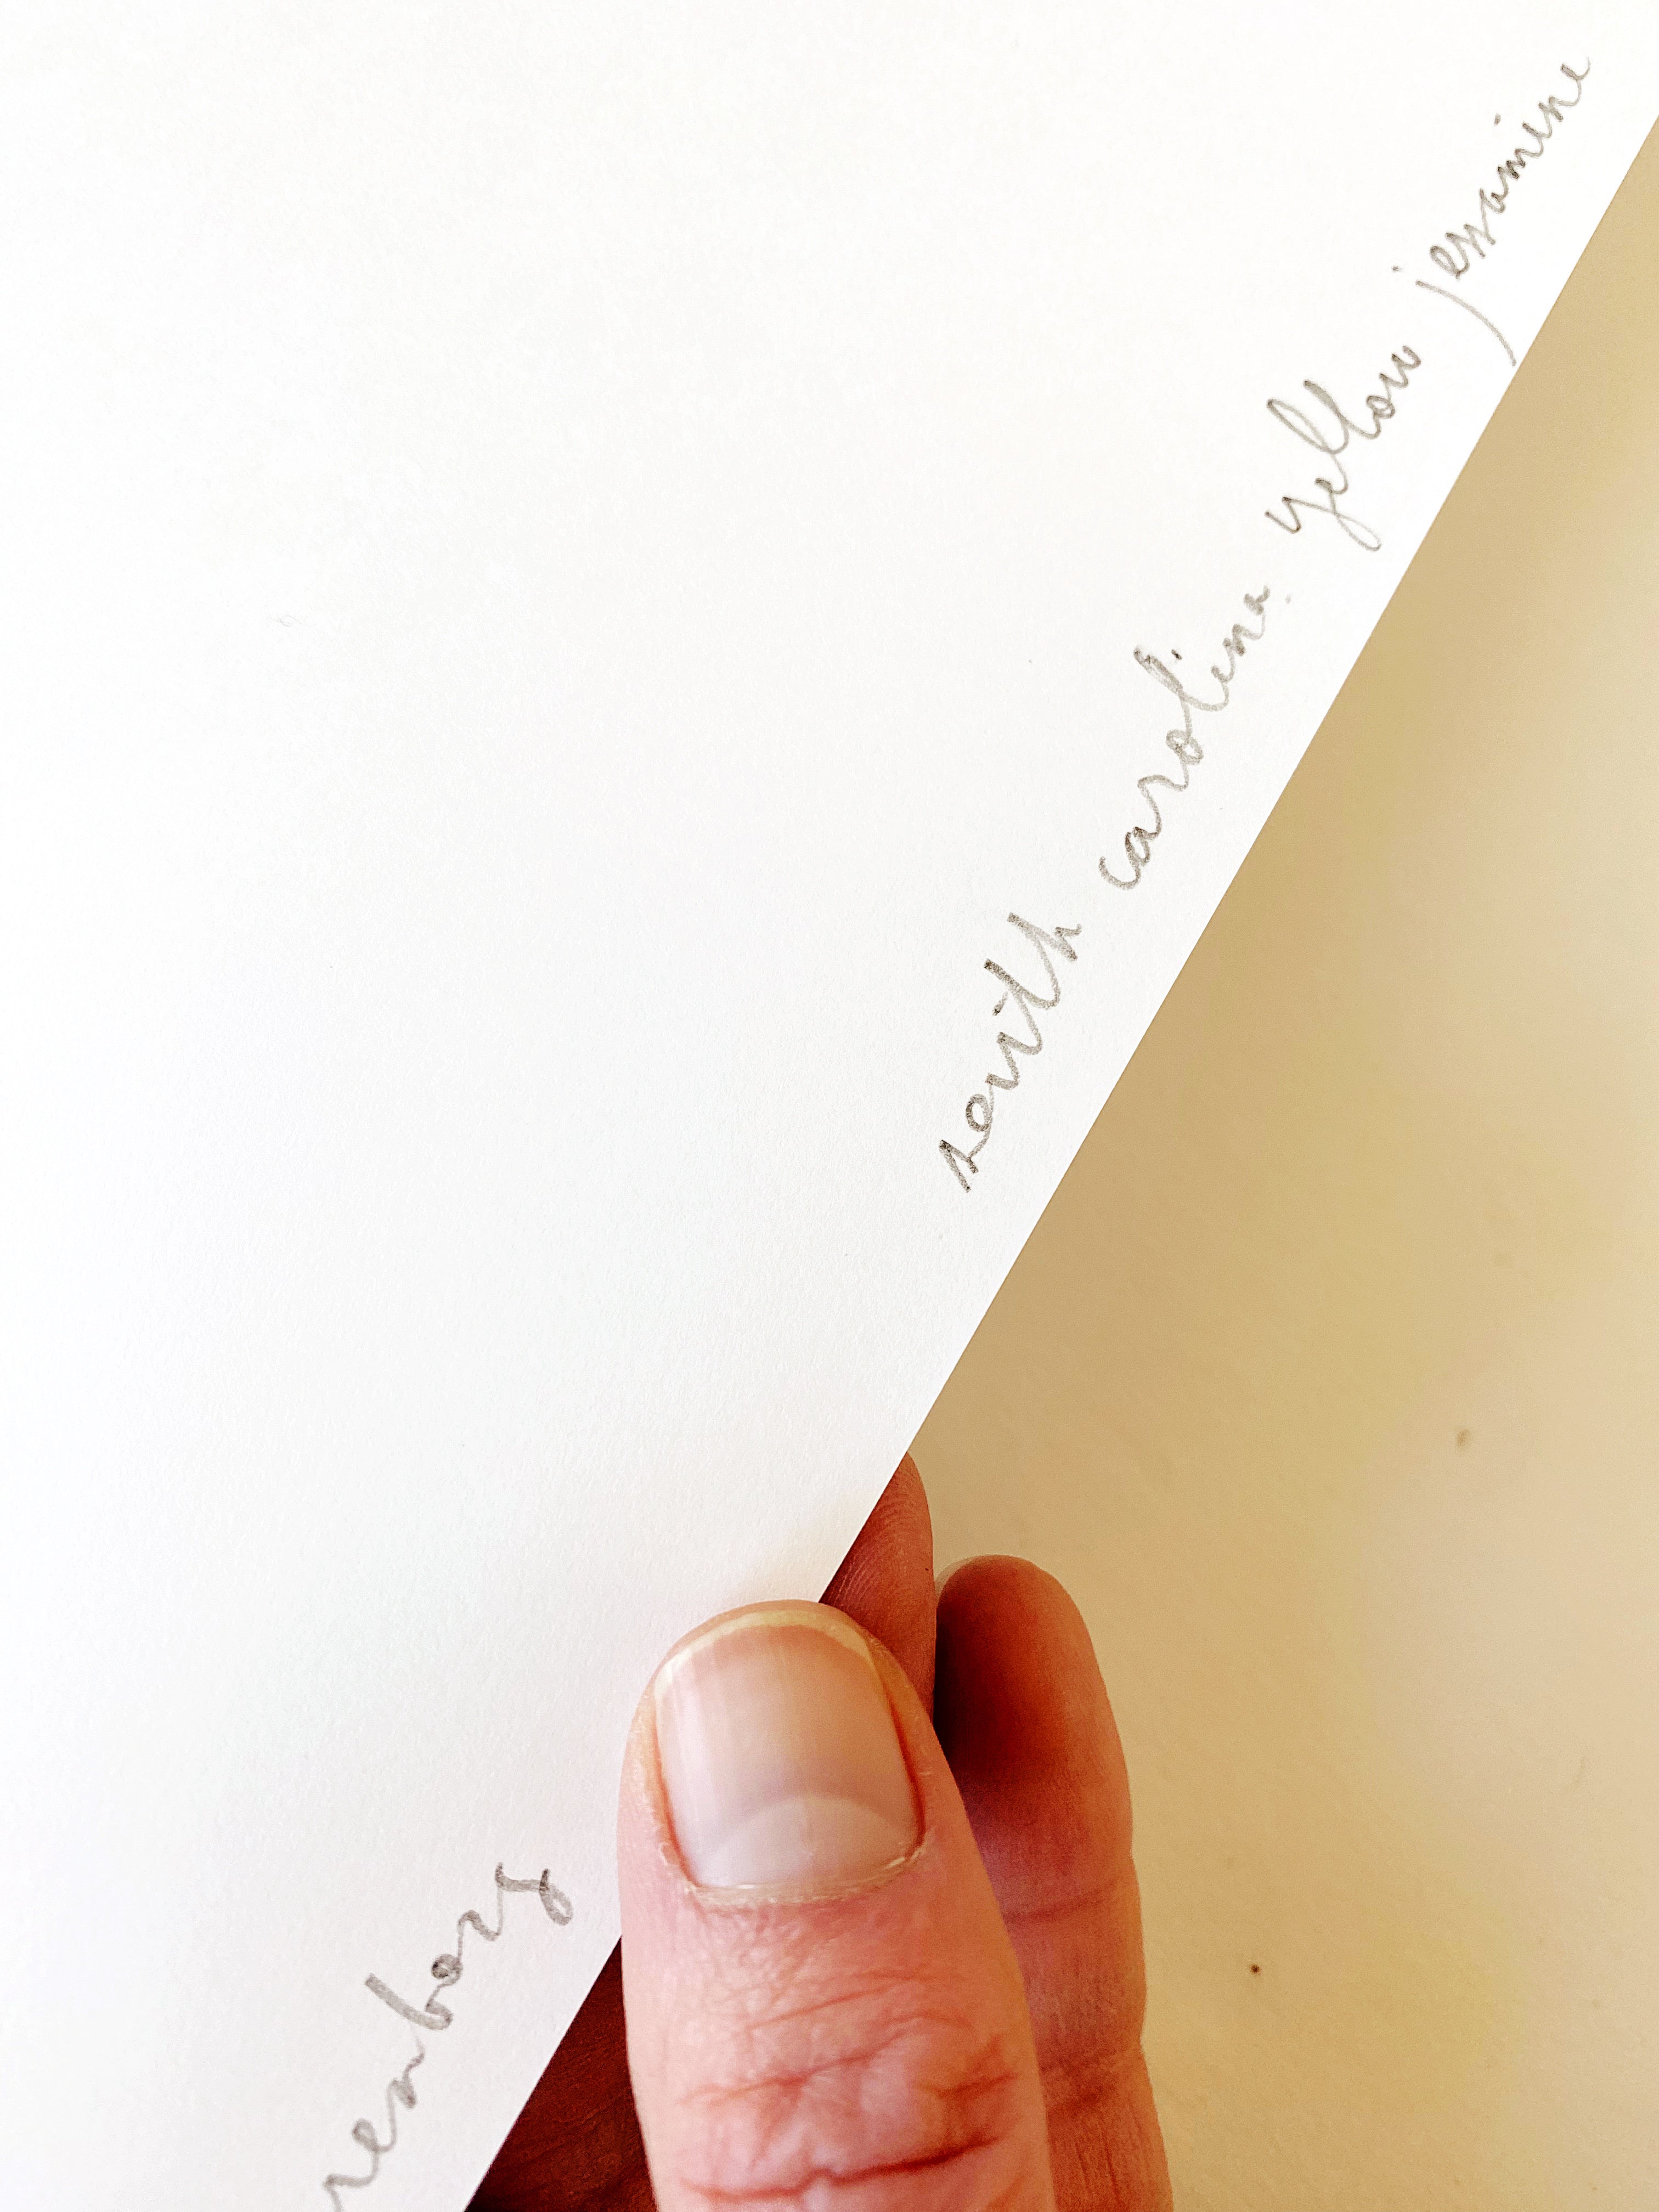 south carolina yellow jessamine